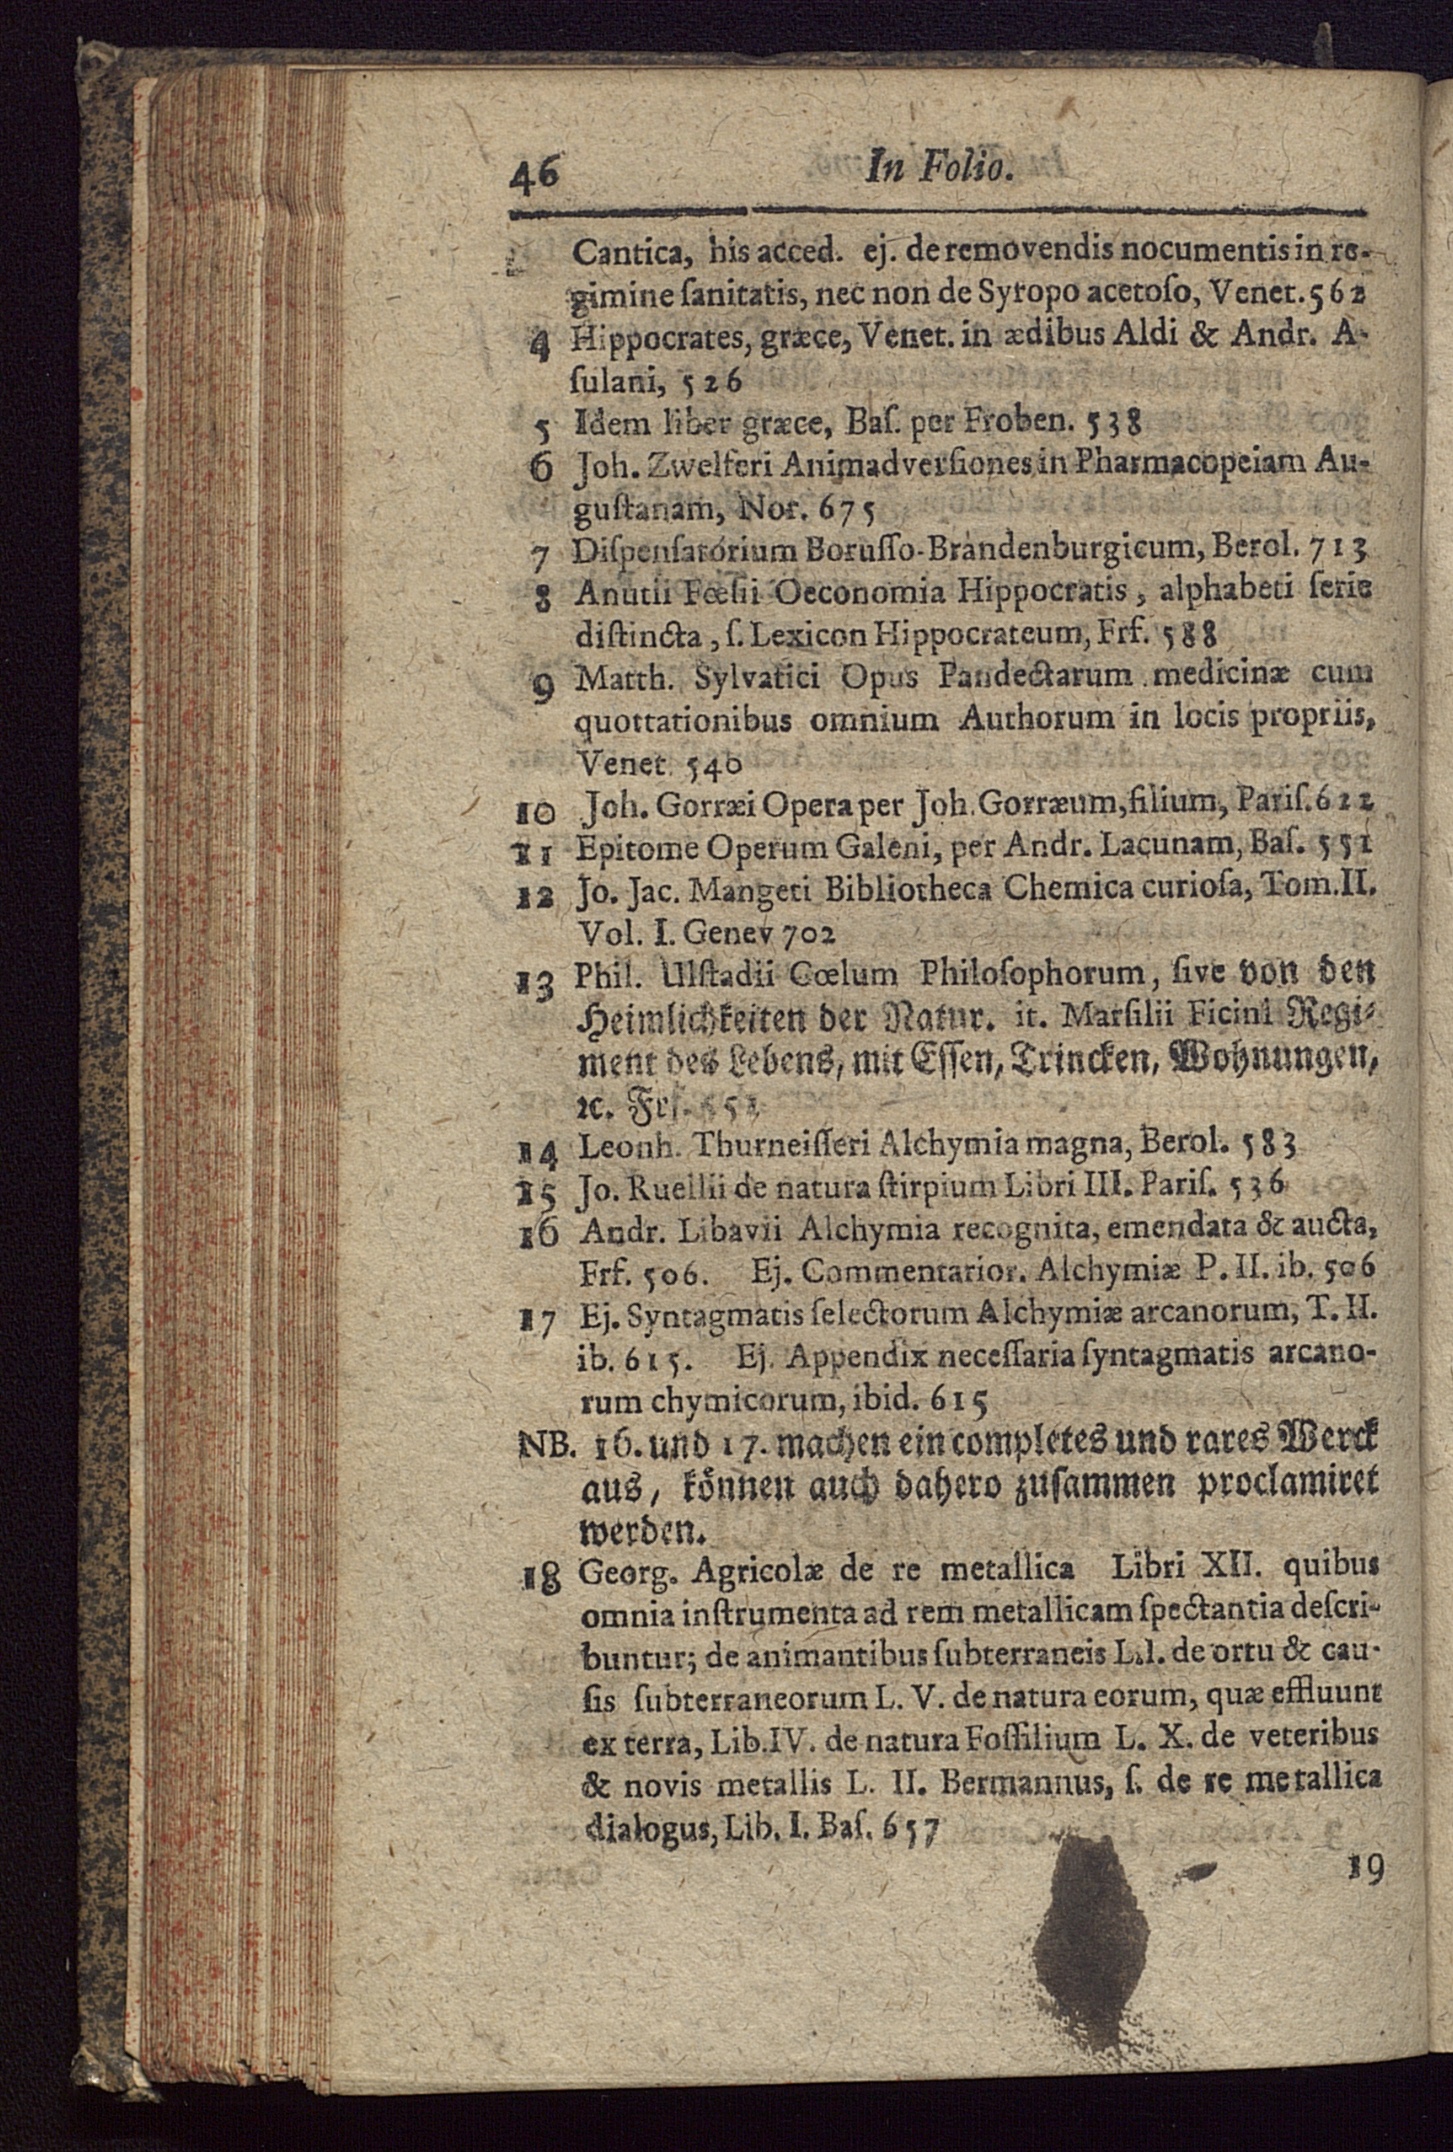 46 In Folio.
Cantica, his acced. ej. de removendis nocumentis in re-
gimine ſanitatis, nec non de Syropo acetoſo, Venet. 562
4 Hippocrates, græce, Venet. in ædibus Aldi & Andr. A-
ſulani, 526
5 Idem liber græce, Baſ. per Froben. 538
6 Joh. Zwelferi Animadverſiones in Pharmacopeiam Au-
guſtanam, Nor. 675
7 Diſpenſatorium Boruſſo-Brandenburgicum, Berol. 713
8 Anutii Fœſii Oeconomia Hippocratis, alphabeti ſerie
diſtincta, ſ. Lexicon Hippocrateum, Frf. 588
9 Matth. Sylvatici Opus Pandectarum medicinæ cum
quottationibus omnium Authorum in locis propriis,
Venet 540
10 Joh. Gorræi Opera per Joh. Gorræum, filium, Pariſ. 622
11 Epitome Operum Galeni, per Andr. Lacunam, Baſ. 551
12 Jo. Jac. Mangeti Bibliotheca Chemica curioſa, Tom. II.
Vol. I. Genev 702
13 Phil. Ulſtadii Cœlum Philoſophorum, ſive von den
Heimlichkeiten der Natur. it. Marſilii Ficini Regi-
ment des Lebens, mit Eſſen, Trincken, Wohnungen,
ꝛc. Frf.
14 Leonh. Thurneiſſeri Alchymia magna, Berol. 583
15 Jo. Ruellii de natura ſtirpium Libri III. Pariſ. 536
16 Andr. Libavii Alchymia recognita, emendata & aucta,
Frf. 506. Ej. Commentarior. Alchymiæ P. II. ib. 506
17 Ej. Syntagmatis ſelectorum Alchymiæ arcanorum, T. II.
ib. 615. Ej. Appendix neceſſaria ſyntagmatis arcano-
rum chymicorum, ibid. 615
NB. 16. und 17. machen ein completes und rares Werck
aus, können auch dahero zuſammen proclamiret
werden.
18 Georg. Agricolæ de re metallica Libri XII. quibus
omnia inſtrumenta ad rem metallicam ſpectantia deſcri-
buntur; de animantibus ſubterraneis L. I. de ortu & cau-
ſis ſubterraneorum L. V. de natura eorum, quæ effluunt
ex terra, Lib. IV. de natura Foſſilium L. X. de veteribus
& novis metallis L. II. Bermannus, ſ. de re metallica
dialogus, Lib. I. Baſ. 657
19